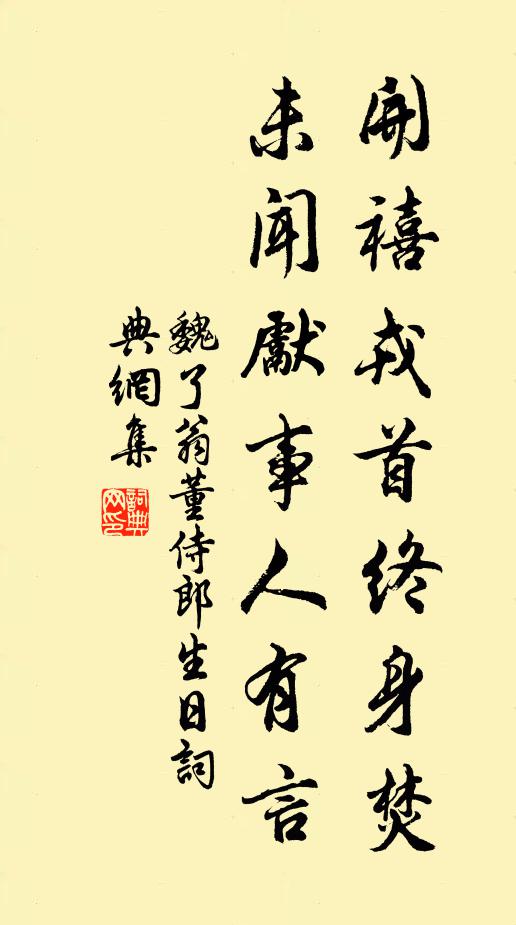 開禧戎首終身焚
未聞獻事人有言
魏了翁董侍郎生日詞
典網集
詞典網印